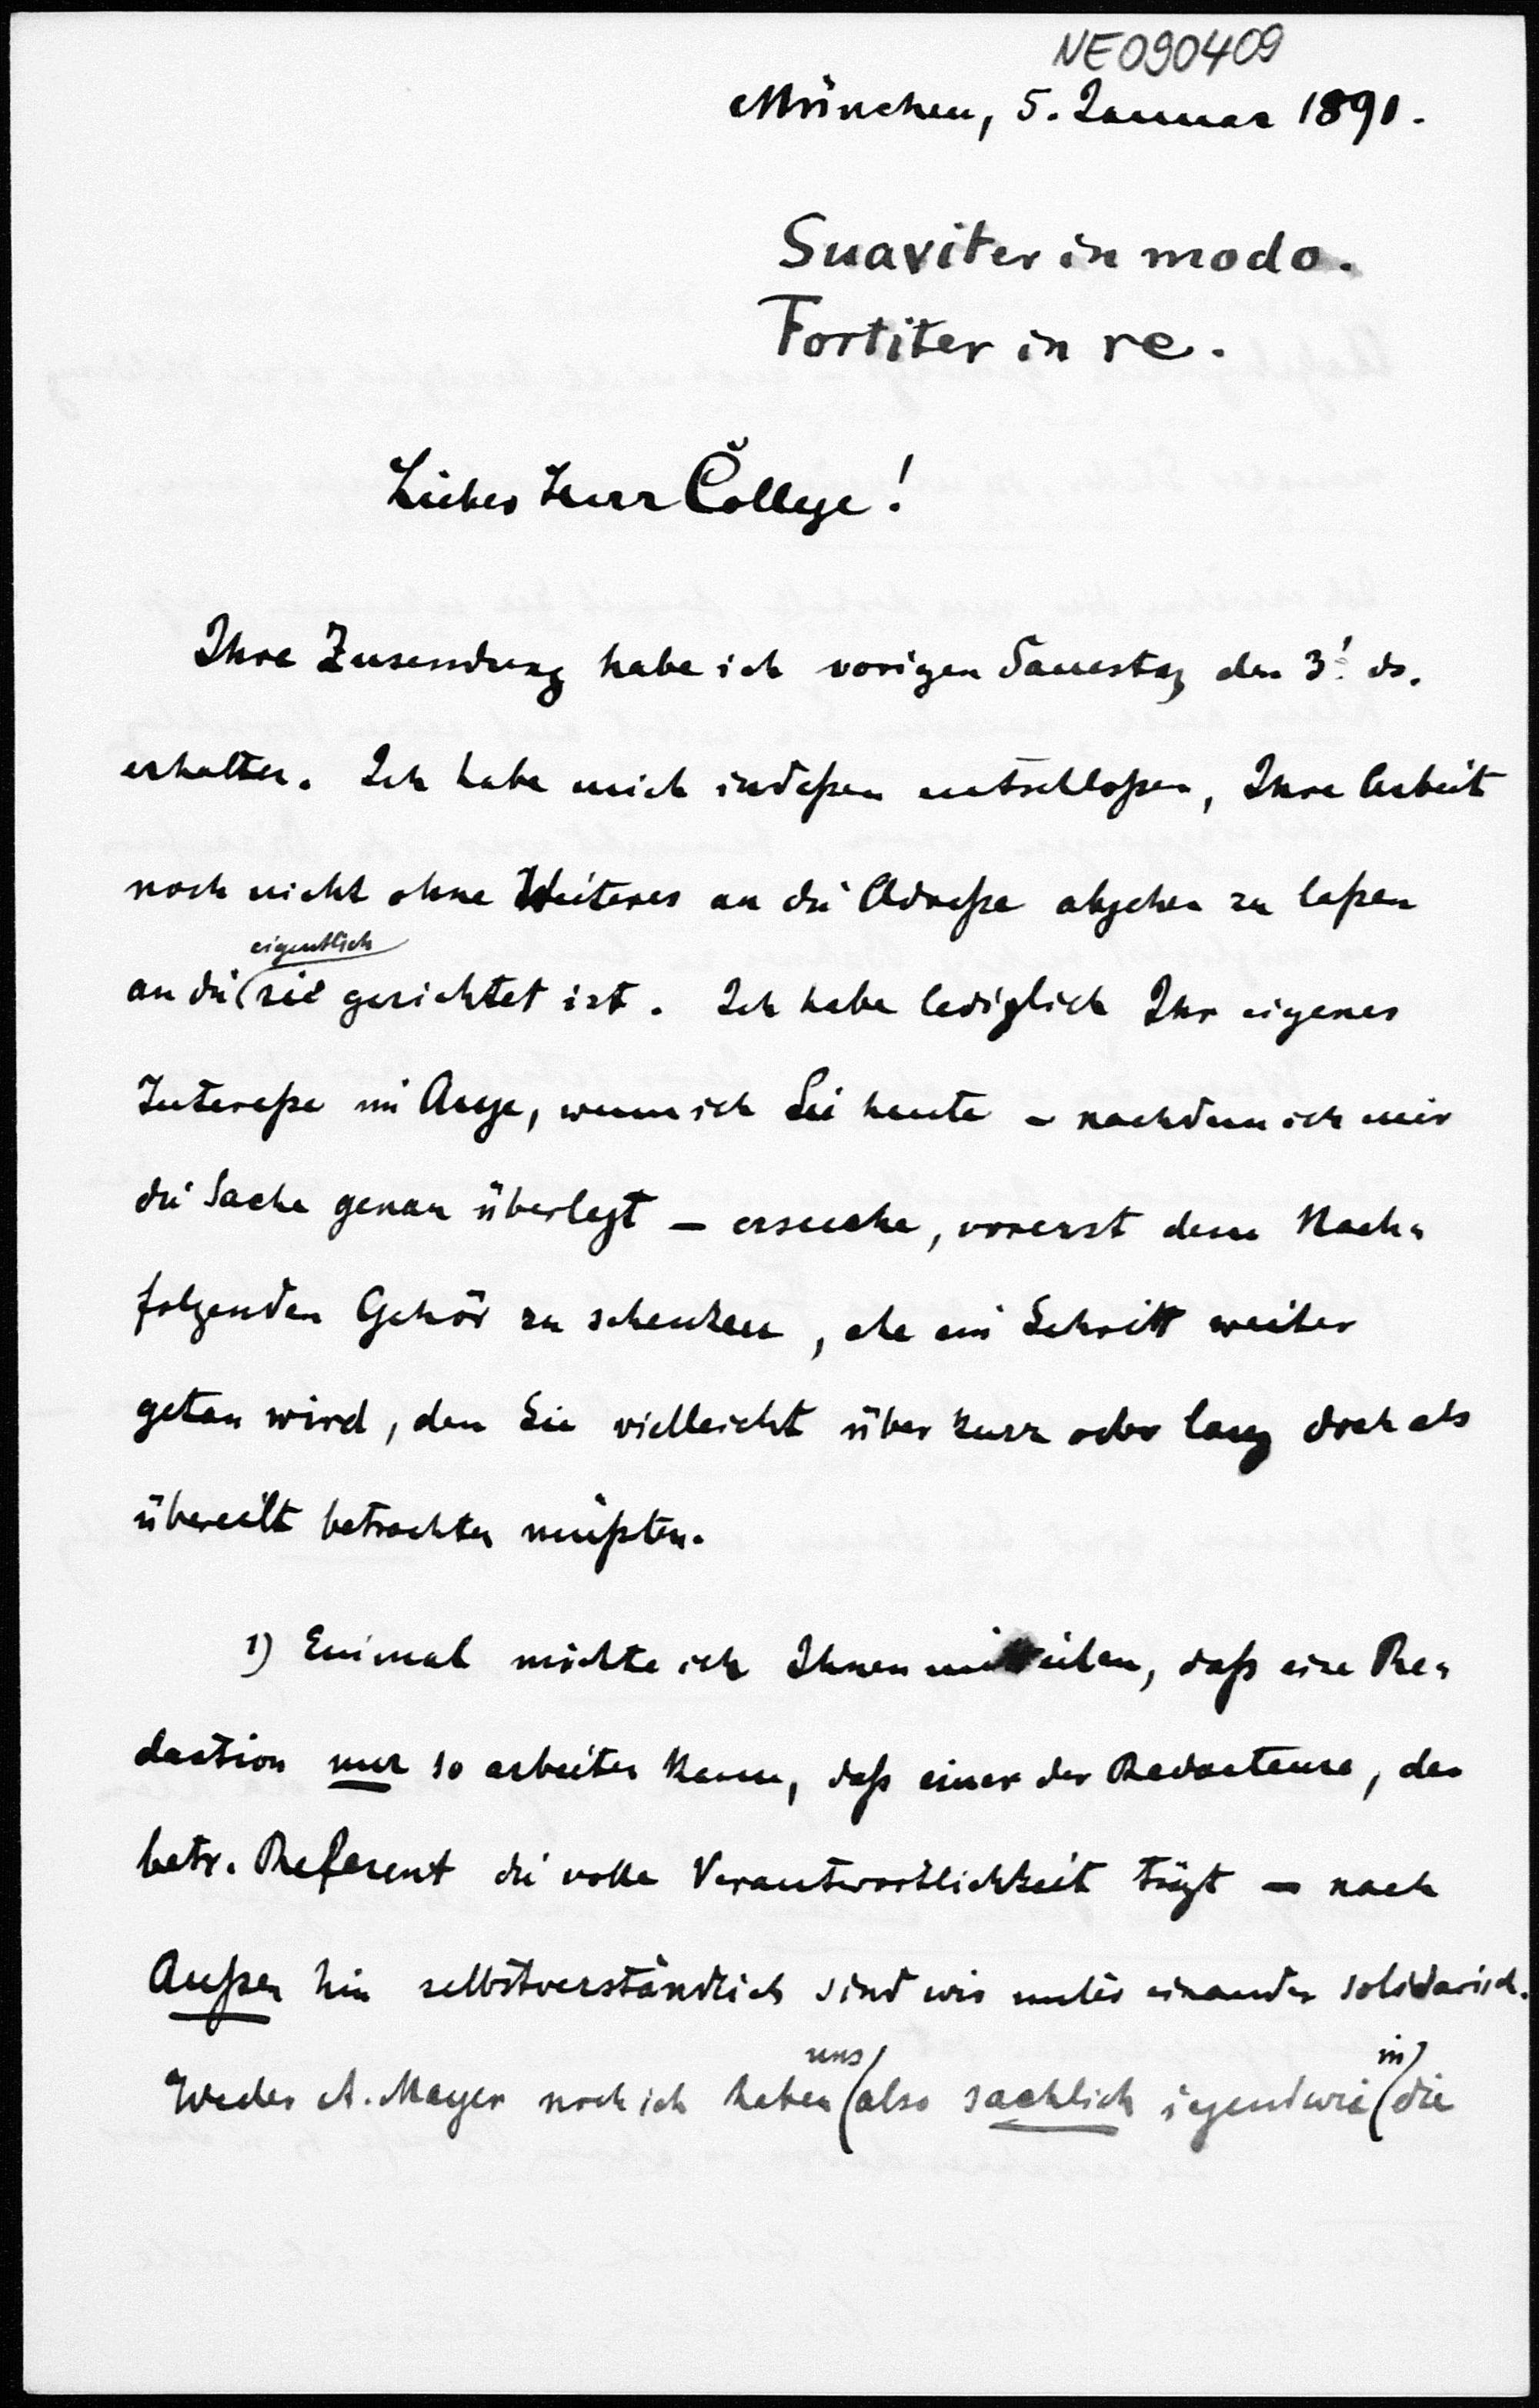 NE090409
München, 5. Januar 1891.
Suaviter in modo.
Fortiter in re.
Lieber Herr College!
Ihre Zusendung habe ich vorigen Samstag den 3. ds.
erhalten. Ich habe mich indeßen entschloßen, Ihre Arbeit
noch nicht ohne Weiteres an die Adreße abgehen zu laßen
eigentlich
an die sie gerichtet ist. Ich habe lediglich Ihr eigenes
Intereße im Auge, wenn ich Sie heute – nachdem ich mir
die Sache genau überlegt – ersuche, vorerst dem Nach-
folgenden Gehör zu schenken, ehe ein Schritt weiter
getan wird, den Sie vielleicht über kurz oder lang doch als
übereilt betrachten müßten.
1) Einmal möchte ich Ihnen mitteilen, daß eine Re-
daction nur so arbeiten kann, daß einer der Redacteure, der
betr. Referent die volle Verantwortlichkeit trägt – nach
Außen hin selbstverständlich sind wir unter einander solidarisch.
uns in
Weder A. Mayer noch ich haben also sachlich irgendwie die